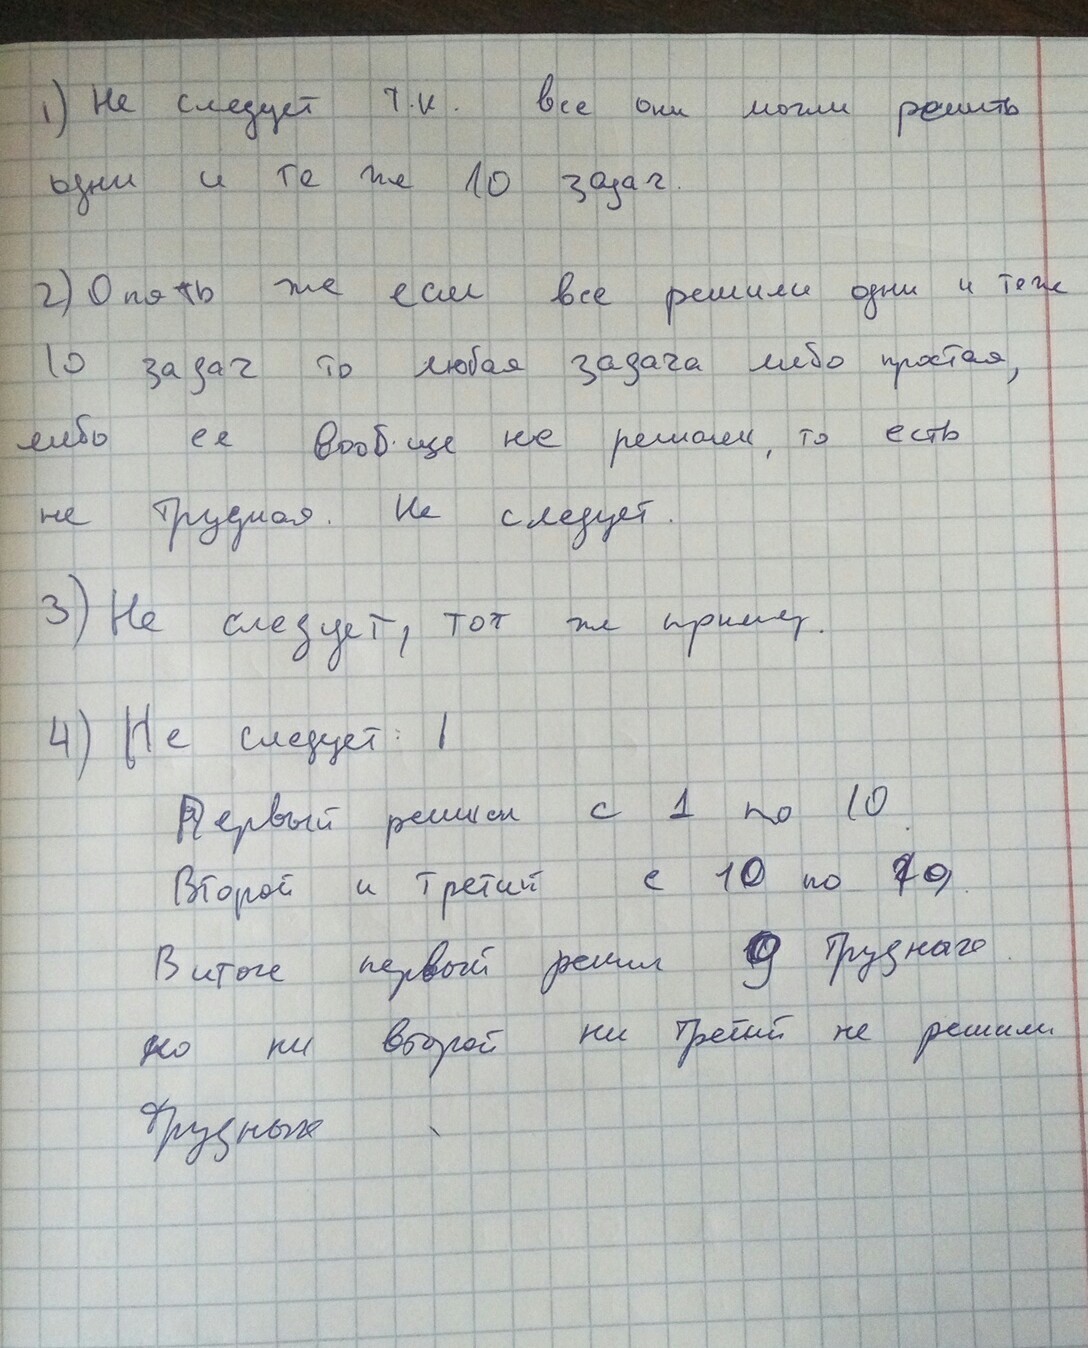 1) Не следует т.к. все они могли решить
одни и те же 10 задач.
2) Опять же если все решили одни и теже
10 задач то любая задача либо простая,
либо ее вообще не решали, то есть
не трудная. Не следует.
3) Не следует, тот же пример.
4) Не следует:
Первый решил с 1 по 10.
Второй и третий с 10 по
В итоге первый решил 9 трудных
но ни второй ни третий не решили
трудных